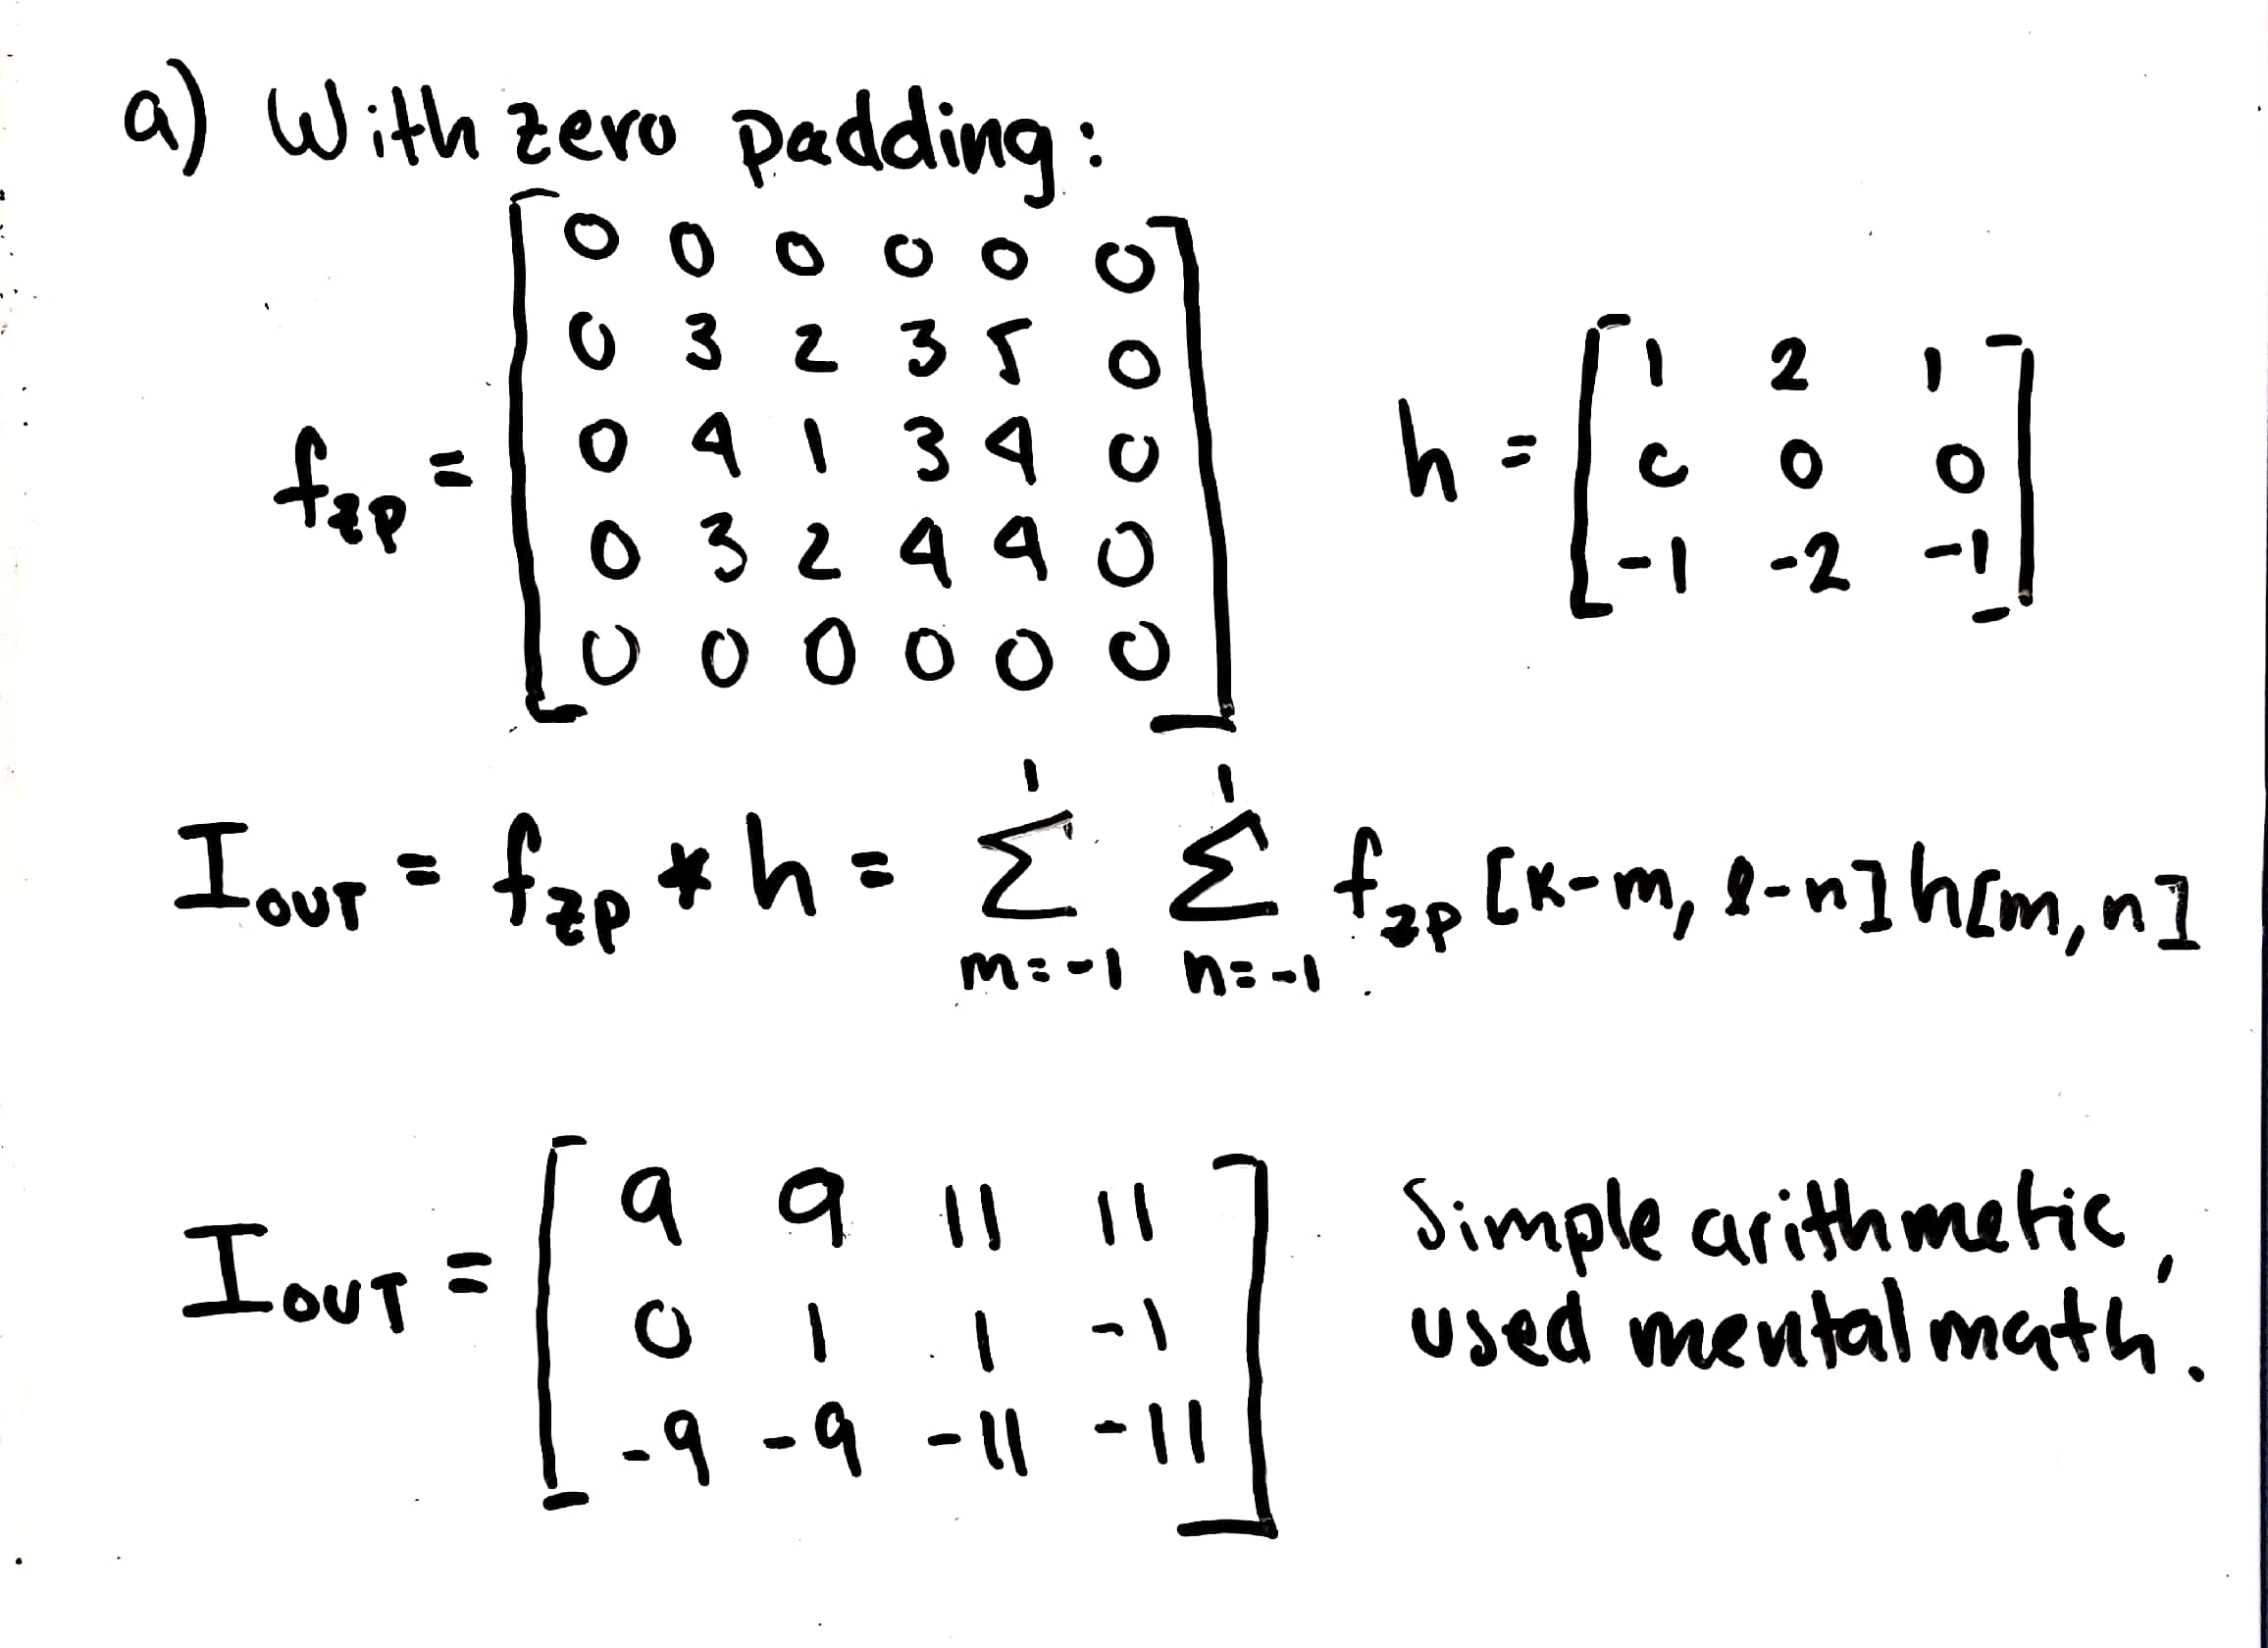 a) With zero padding:
f_zp = [0 0 0 0 0 0
0 3 2 3 5 0
0 4 1 3 4 0
0 3 2 4 4 0
0 0 0 0 0 0]
h = [1 2 1
0 0 0
-1 -2 -1]
I_OUT = f_zp * h = Σ_{m=-1}^{1} Σ_{n=-1}^{1} f_zp[k-m, l-n] h[m,n]
I_OUT = [9 9 11 11
0 1 1 -1
-9 -9 -11 -11]
Simple arithmetic,
used mental math.